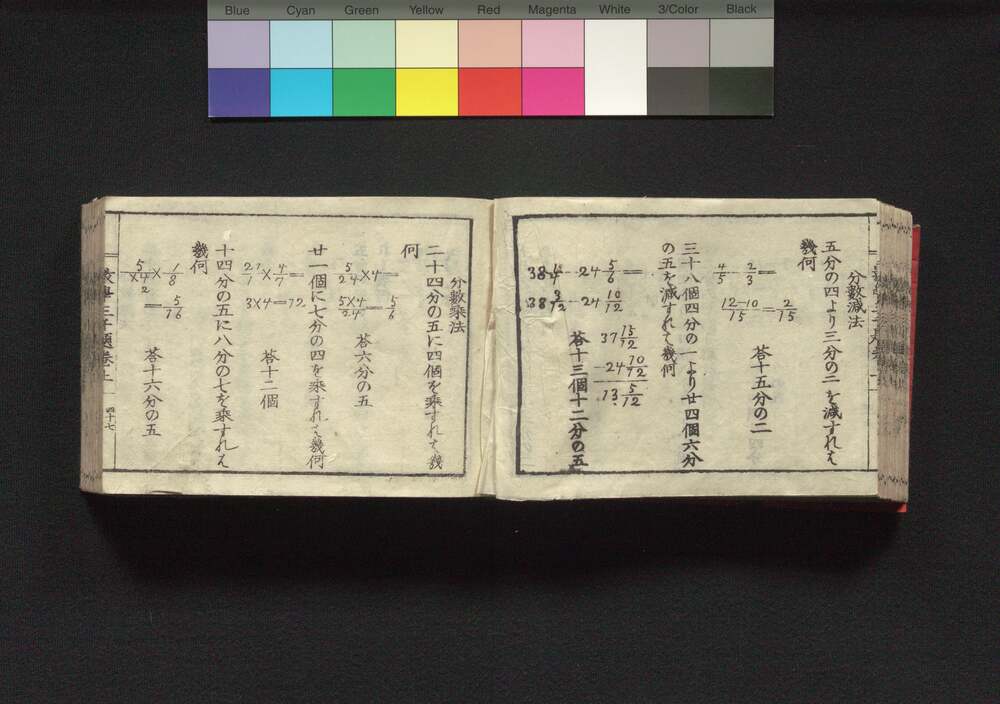 Blue Cyan Green Yellow Red Magenta White 3/Color Black
分數減法
五分の四より三分の二を減すれば
幾何
4/5 - 2/3 =
12-10/15 = 2/15
答十五分の二
三十八個四分の一より廿四個六分
の五を減すれば幾何
38 1/4 - 24 5/6 =
38 3/12 - 24 10/12
37 15/12
-24 10/12
13 5/12
答十三個十二分の五
分數乗法
二十四分の五に四個を乗すれば幾
何
5/24 × 4 =
5×4/24 = 5/6
答六分の五
廿一個に七分の四を乗すれば幾何
21/1 × 4/7 =
3×4=12
答十二個
十四分の五に八分の七を乗すれば
幾何
= 5/16
答十六分の五
四十七